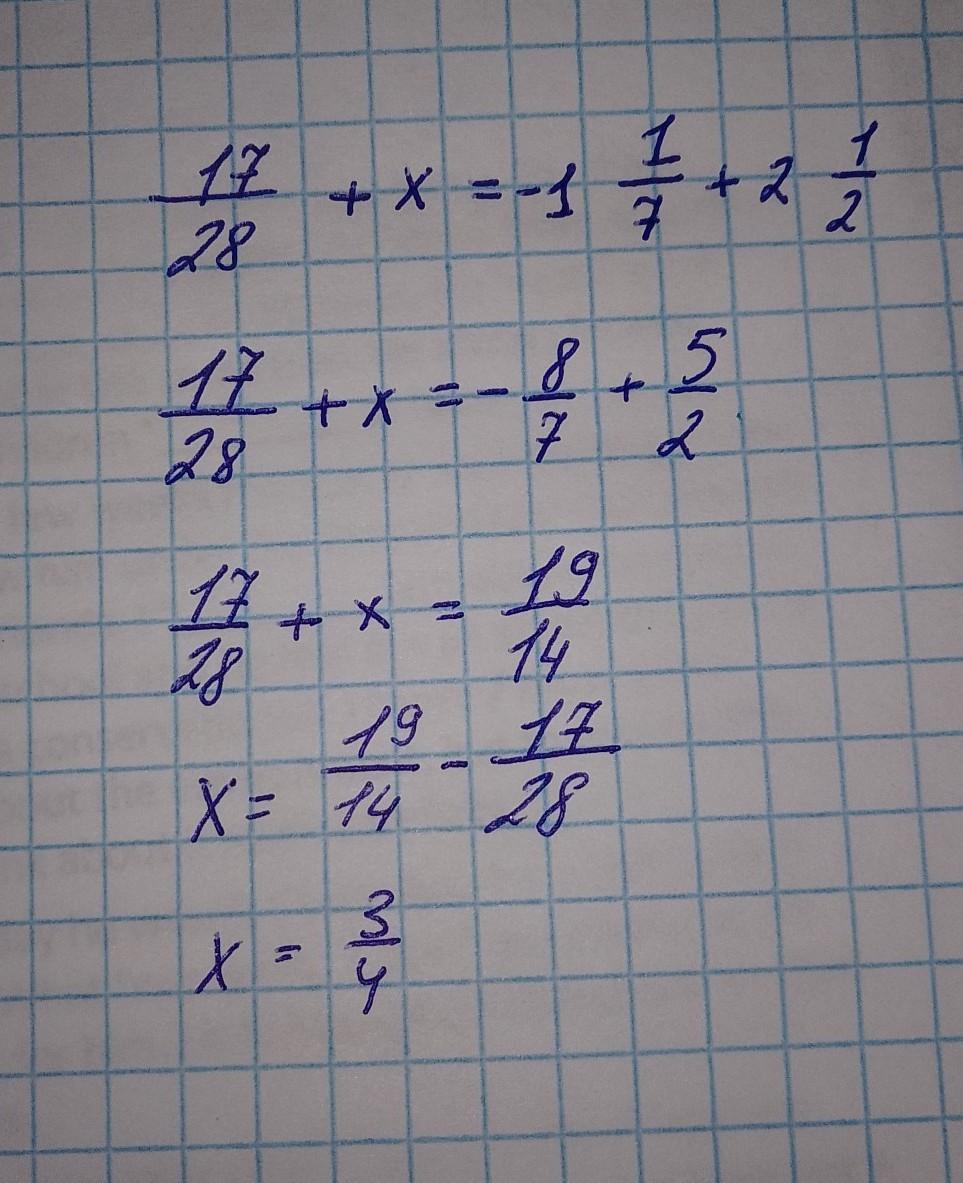 17/28 + x = -1 1/7 + 2 1/2
17/28 + x = - 8/7 + 5/2
17/28 + x = 19/14
x = 19/14 - 17/28
x = 3/4